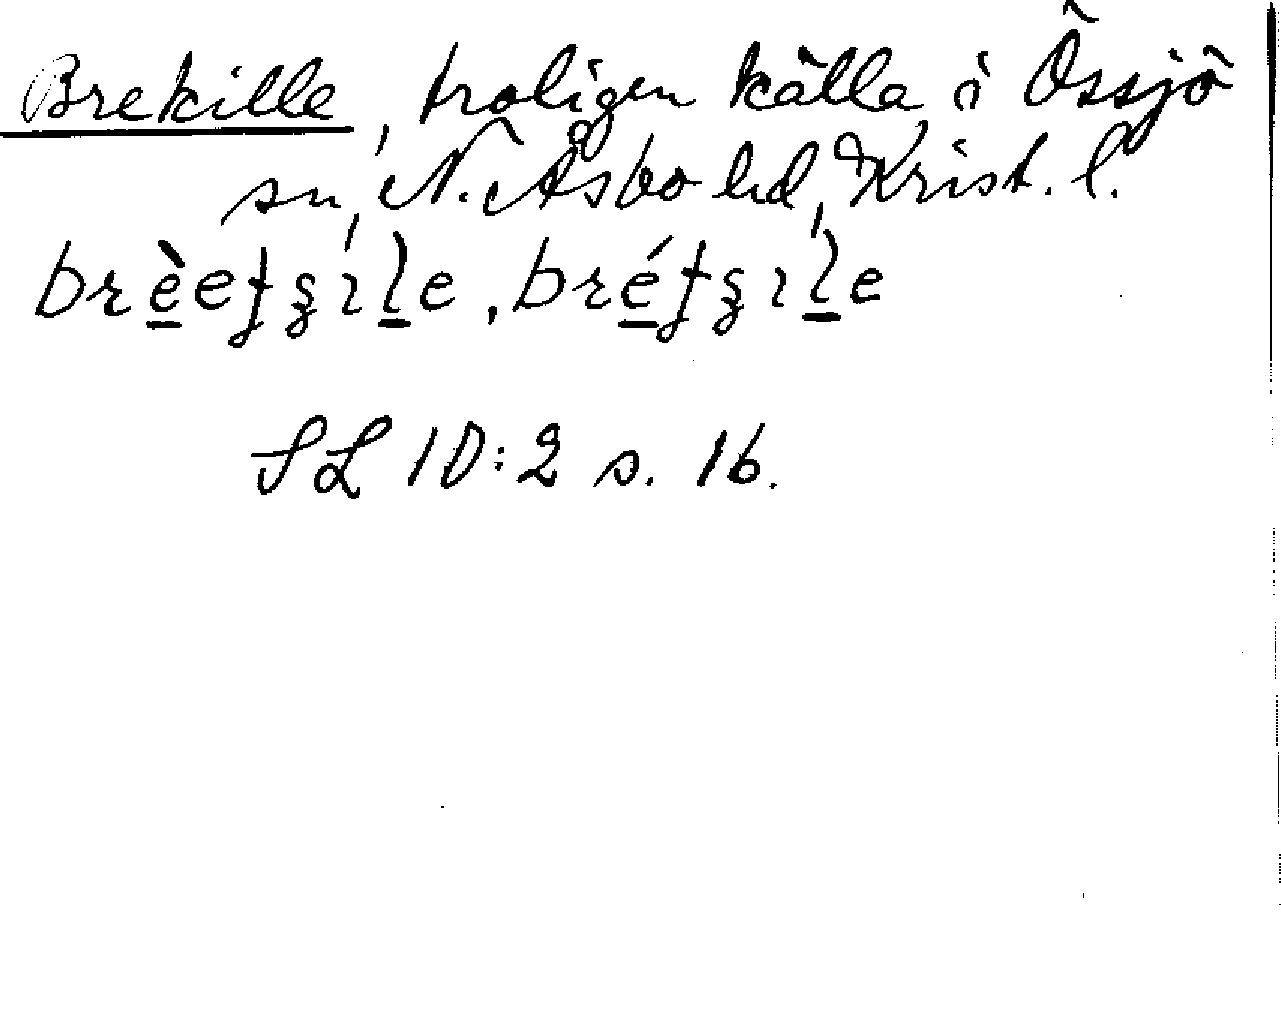 Brekille, troligen källa i Össjö
sn, N. Åsbo hd, Krist. l.
brèeʄȿıl̲e, bréʄȿıl̲e
SL 10:2 s. 16.